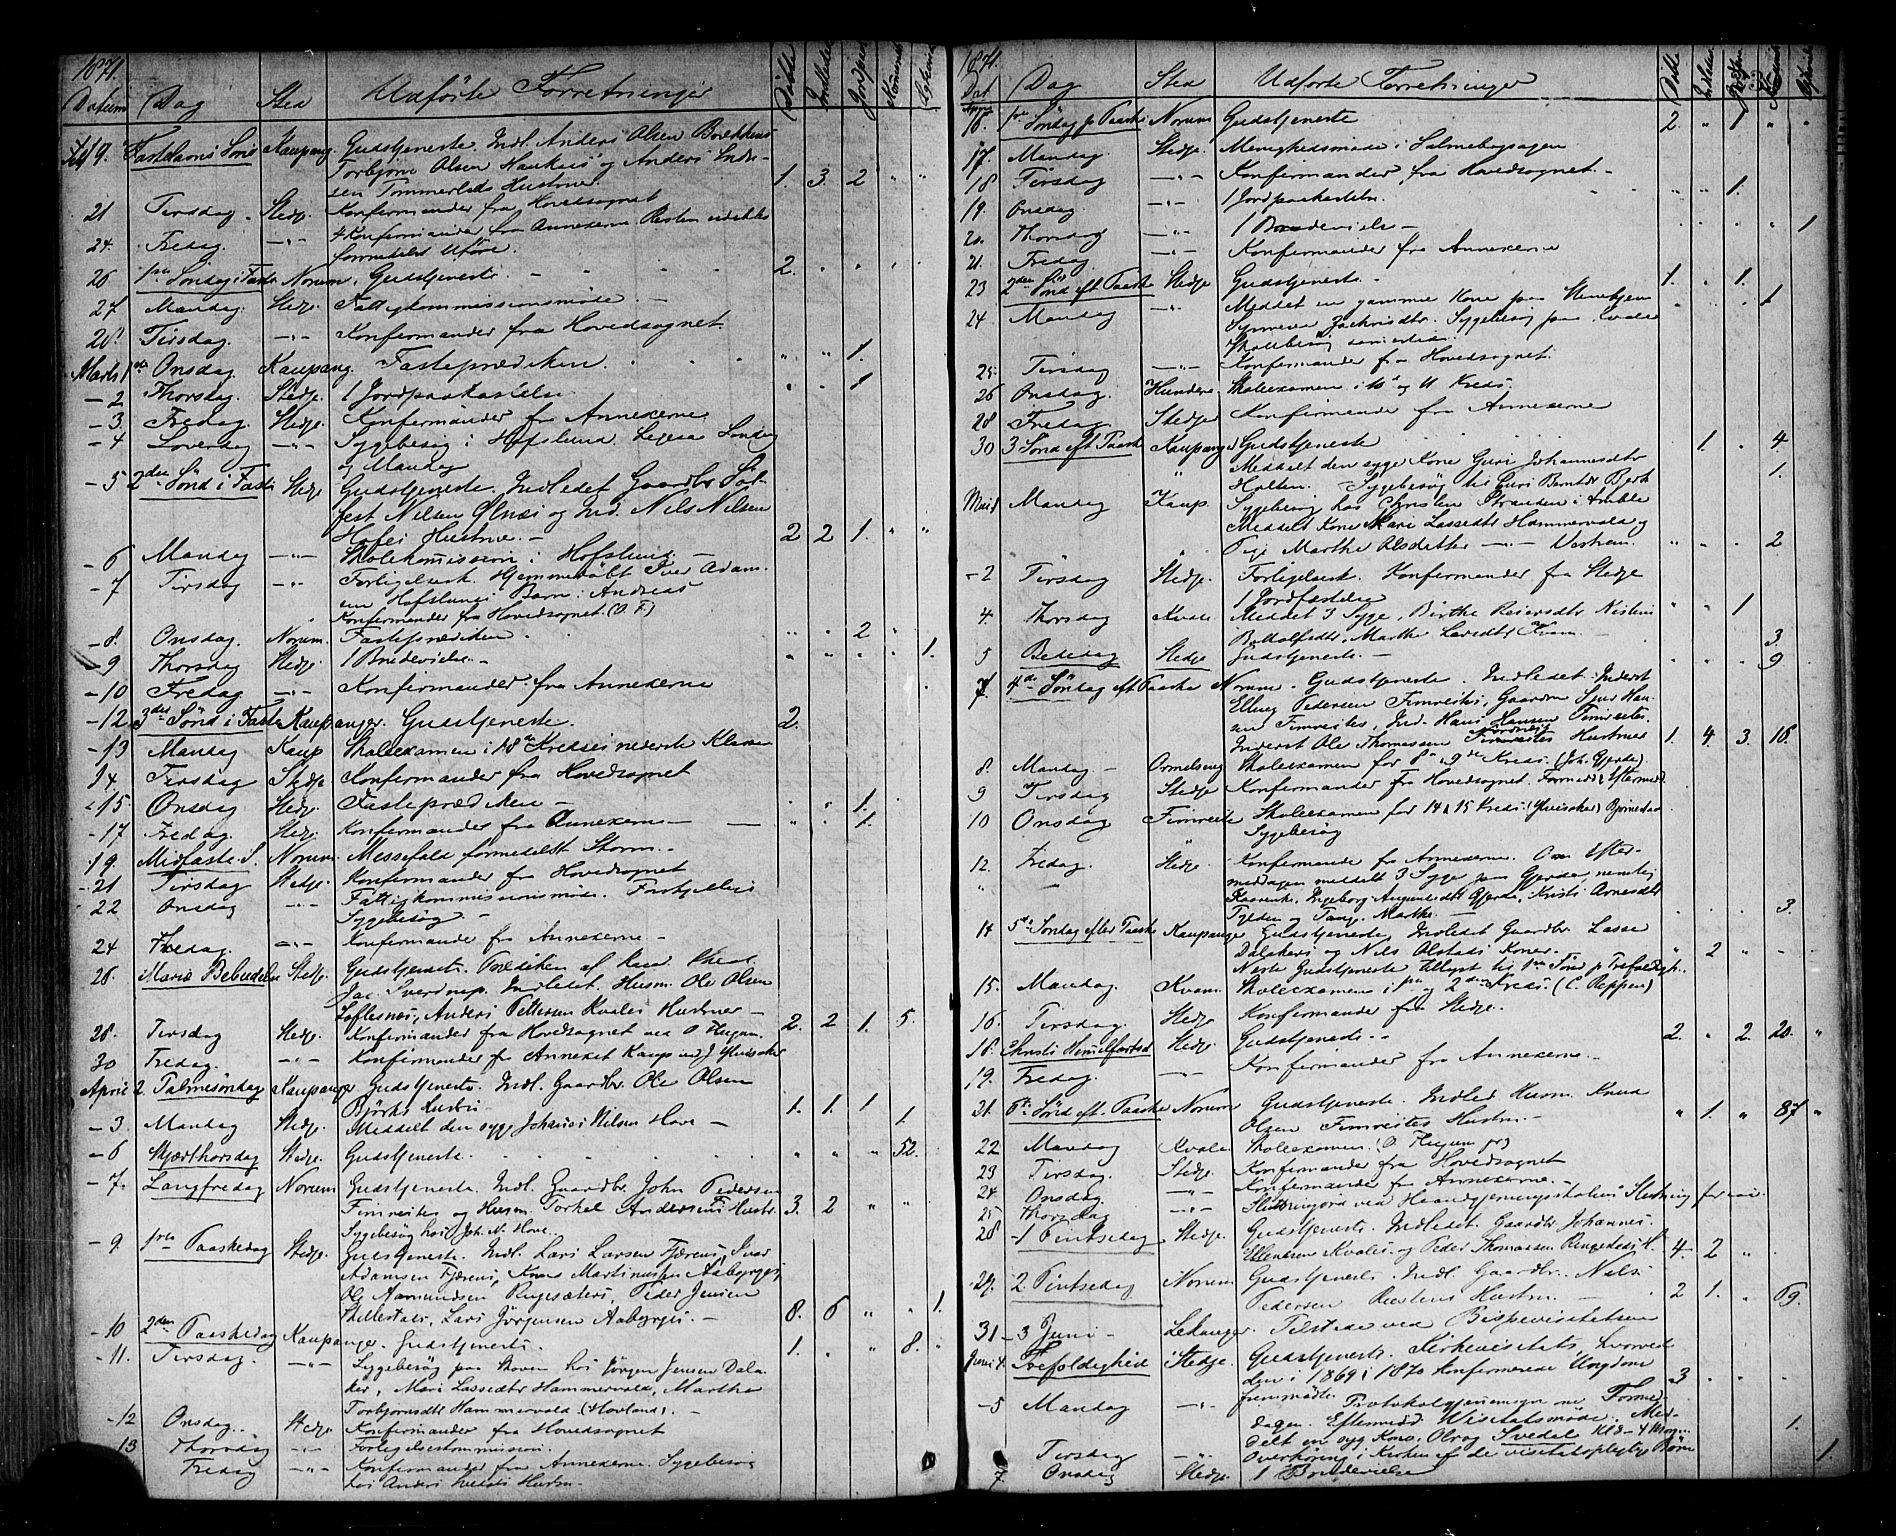 1871.
Datum Dag Sted Udførte Forretninger Døbte Indledte Jordpaa
19. Fastelavns Sønd Kaupang. Gudstjeneste. Indl. Anders Olsen
Torbjørn Olsen Haukaas og Anders
sen Timmerlids Hustruer. 1. 3. 2 " "
21 Tirsdag. Stedje. Konfirmander fra Hovedsognet
24. Fredag. —"— 4 Konfirmander fra Annexerne. Resten udeblev
formedelst Uføre.
26 1ste Søndag i Faste Norum. Gudstjeneste. 2.
27 Mandag. Stedje. Fattigkommissionsmøde. —
28 Tirsdag. —"— Konfirmander fra Hovedsognet
Marts 1ste Onsdag. Kaupang. Fasteprædiken. " " 1.
— 2 Thorsdag. Stedje. 1 Jordpaakastelse. " " 1
— 3 Fredag. Stedje. Konfirmander fra Annexerne
— 4 Løverdag —"— Sygebesøg i Hofslund. Ligesaa Søndag
og Mandag
— 5 2den Sønd i Faste Stedje Gudstjeneste. Indledet Gaardbr
Nilsen Ølnæs og Ind. Nils Nilsen
Hofs Hustruer. — 2 2 1. " "
— 6 Mandag —"— Skolekommission i Hofslund. —
— 7 Tirsdag —"— Forligelsesk. Hjemmedøbt Iver Adam-
sen Hofslunds Barn: Andreas
Konfirmander fra Hovedsognet (O. F.)
— 8. Onsdag. Norum. Fasteprædiken. " " 2 "
— 9 Thorsdag Stedje. 1 Brudevielse. — " " " " 1.
— 10 Fredag —"— Konfirmander fra Annexerne
— 12. 3die Sønd i Faste Kaupanger. Gudstjeneste. 2.
— 13 Mandag Kaup Skoleexamen i 18de Kredses nederste Klasse
14 Tirsdag Stedje Konfirmander fra Hovedsognet
— 15. Onsdag Stedje. Fasteprædiken — " " 1.
— 17 Fredag. Stedje. Konfirmander fra Annexerne — " " 1.
19. Midfaste S. Norum. Messefald formedelst Storm. —
— 21 Tirsdag Stedje. Konfirmander fra Hovedsognet
— 22 Onsdag —"— Fattigkommissionsmøde.
Sygebesøg. —
24 Fredag. —"— Konfirmander fra Annexerne —
Maria Bebudelse Stedje. Gudstjeneste. Prædiken af
Jac. Sverdrup. Indledet. Husm. Ole Olsen
Loftesnæs, Anders Pettersen Kvales Hustruer — 2. 2 1. 5.
28. Tirsdag Stedje. Konfirmander fra Hovedsognet ved O Hegum.
30 —"— Konfirmander fr Annexet Kaup ved J
April 2 Palmesøndag Kaupanger Gudstjeneste. Indl. Gaardbr. Ole Olsen
Bjørks Hustru — 1. 1. 1 "
— 3 Mandag Stedje. Meddelt den syge Johannes Nilsen Hove — 1
— 6 Skjærthorsdag Stedje. Gudstjeneste. " " " 52.
— 7. Langfredag Norum Gudstjeneste. Indl. Gaardbr. John Pedersen
Fimreites og Husm. Torkel Andersens Hustr. 3. 2 " "
Sygebesøg hos Joh. N. Hove.
— 9. 1ste Paaskedag Stedje. Gudstjeneste. Indl. Lars Larsen Fjærens, Ivar
Adamsen Fjærens, Knud Martinussen Aaberges,
Ole Aamundsen Rigesæters, Peder Jensen
Skillestads, Lars Jørgensen Aaberges. — 8. 6 " " 1.
— 10 2den Paaskedag Kaupanger. Gudstjeneste. 1. " " 8. "
— 11. Tirsdag. —"— Sygebesøg paa Skoven hos Jørgen Jensen Dala-
ker, Mari Lassedtr Hammervold, Martha
Torbjørnsdtr Hammervold. (Hovland).
— 12 Onsdag. Stedje. Konfirmander fra Hovedsognet
13 Thorsdag —"— Forligelseskommission.
Fredag —"— Konfirmander fra Annexerne. Sygebesøg
hos Anders Hustru —
1871.
Dat Dag Sted Udførte Forretninger
April 16. 1ste Søndag p. Paaske Norum Gudstjeneste 2. " 1 " "
17. Mandag. Stedje. Menighedsmøde i Salmebogsagen
18 Tirsdag —"— Konfirmander fra Hovedsognet. —
19. Onsdag —"— 1 Jordpaakastelse. " " 1.
20. Thorsdag —"— 1 Brudevielse — 1
21. Fredag —"— Konfirmander fra Annexerne
23 2den Sønd eft Paaske Stedje Gudstjeneste. — 1. " 1.
24 Mandag —"— Meddelt en gammel Kone paa 1
Synneva Zachrisdtr. Sygebesøg paa Kvale
25. Tirsdag —"— Konfirmander fra Hovedsognet.
26 Onsdag. Hundere Skoleexamen i 10de og 11 Kreds.
28 Fredag Stedje Konfirmander fra Annexerne
30 3 Sønd eft Paaske Kaupanger Gudstjeneste 1 " 4
Meddelt den syge Kone Guri Johannesdtr 1.
Holten. Sygebesøg hos Guri
Mai 1 Mandag Kaup. Sygebesøg hos Christen Stranden i Amble
Meddelt Kone Mari Lassedtr Hammervold og
Pige Marthe Olsdatter —"— Vestrheim. " " " 2
— 2 Tirsdag Stedje. Forligelsesk. Konfirmander fra Stedje
1 Jordfæstelse " " 1
4. Thorsdag Kvale Meddelt 3 Syge, Birthe Reiersdtr
Botolfsdtr, Marthe Lavedtr Kvam. 3.
5 Bededag Stedje Gudstjeneste. — " " " 9
7. 4de Søndag eft Paaske Norum. Gudstjeneste. Indledet Inderst
Elling Pedersen Fimreites, Gaardm Iver Han-
sen Fimreites, Ind. Hans Hansen Fimreites,
Inderst Ole Thomassen Hustruer 1. 4. 3. 18.
8. Mandag — Ormelseng Skoleexamen for 8de og 9de Kreds. (Joh. Gjerde)
9 Tirsdag Stedje Konfirmander fra Hovedsognet. Formidd & Eftermidd
10 Onsdag Fimreite Skoleexamen for 14 & 15 Kreds. Bjørnestad
Sygebesøg
12. Fredag. Stedje. Konfirmande fra Annexerne. Om Efter-
" — middagen meddelt 3 Syge paa Gjerde, nemlig
Ingeborg Gjerde, Kristi Arnesdtr
og Marthe — 3.
14 5te Søndag efter Paaske Kaupanger Gudstjeneste. Indledet Gaardbr. Lasse
Dalakers og Nils Ølstads Koner. " 2 " — —
Næste Gudstjeneste tillyst til 1ste Sønd p. Trefoldigh.
15. Mandag. Kvam. Skoleexamen i 1ste og 2den Kreds. (C. Reppen)
16. Tirsdag. Stedje Konfirmander fra Stedje.
18. Christi Himmelfartsd Stedje. Gudstjeneste. — 2. " 2. 20. "
19. Fredag. —"— Konfirmander fra Annexerne. —
21. 6te Sønd eft. Paaske Norum Gudstjeneste. Indled Husm. Knud
Olsen Fimreites Hustru. " 1. " 87 "
22 Mandag Kvale Skoleexamen. (O Hegum)
23 Tirsdag. Stedje Konfirmande fra Hovedsognet
24 Onsdag. —"— Konfirmander fra Annexerne. —
25 Thorsdag —"— ved Haandgjerningsskolens Slutning for
28 1 Pintsedag Stedje. Gudstjeneste. Indledet. Gaardbr. Johannes
Ellendsen Kvales og Peder Thomassen H. 4 2 "
29. 2 Pintsedag Norum Gudstjeneste. Indl. Gaardbr. Nils
Pedersen Hustru. 2 1. " 69.
31 — 3 Juni — Leikanger. Tilstede ved Bispevisitatsen
Juni 4. Trefoldighed Stedje. Gudstjeneste. Kirkevisitats, hvorved
den i 1869 & 1870 konfirmerede Ungdom 3
fremmødte.
— 5 Mandag —"— Protokolgjennemsyn om Formid-
dagen. Eftermidd Visitatsmøde. Med-
delt en syg Kone, Olrog Svedal Kl 3–4 1.
Tirsdag —"— Overhøring i Kirken af de visitatspligtige Børn
7. Onsdag Stedje. 1 Brudevielse 1.